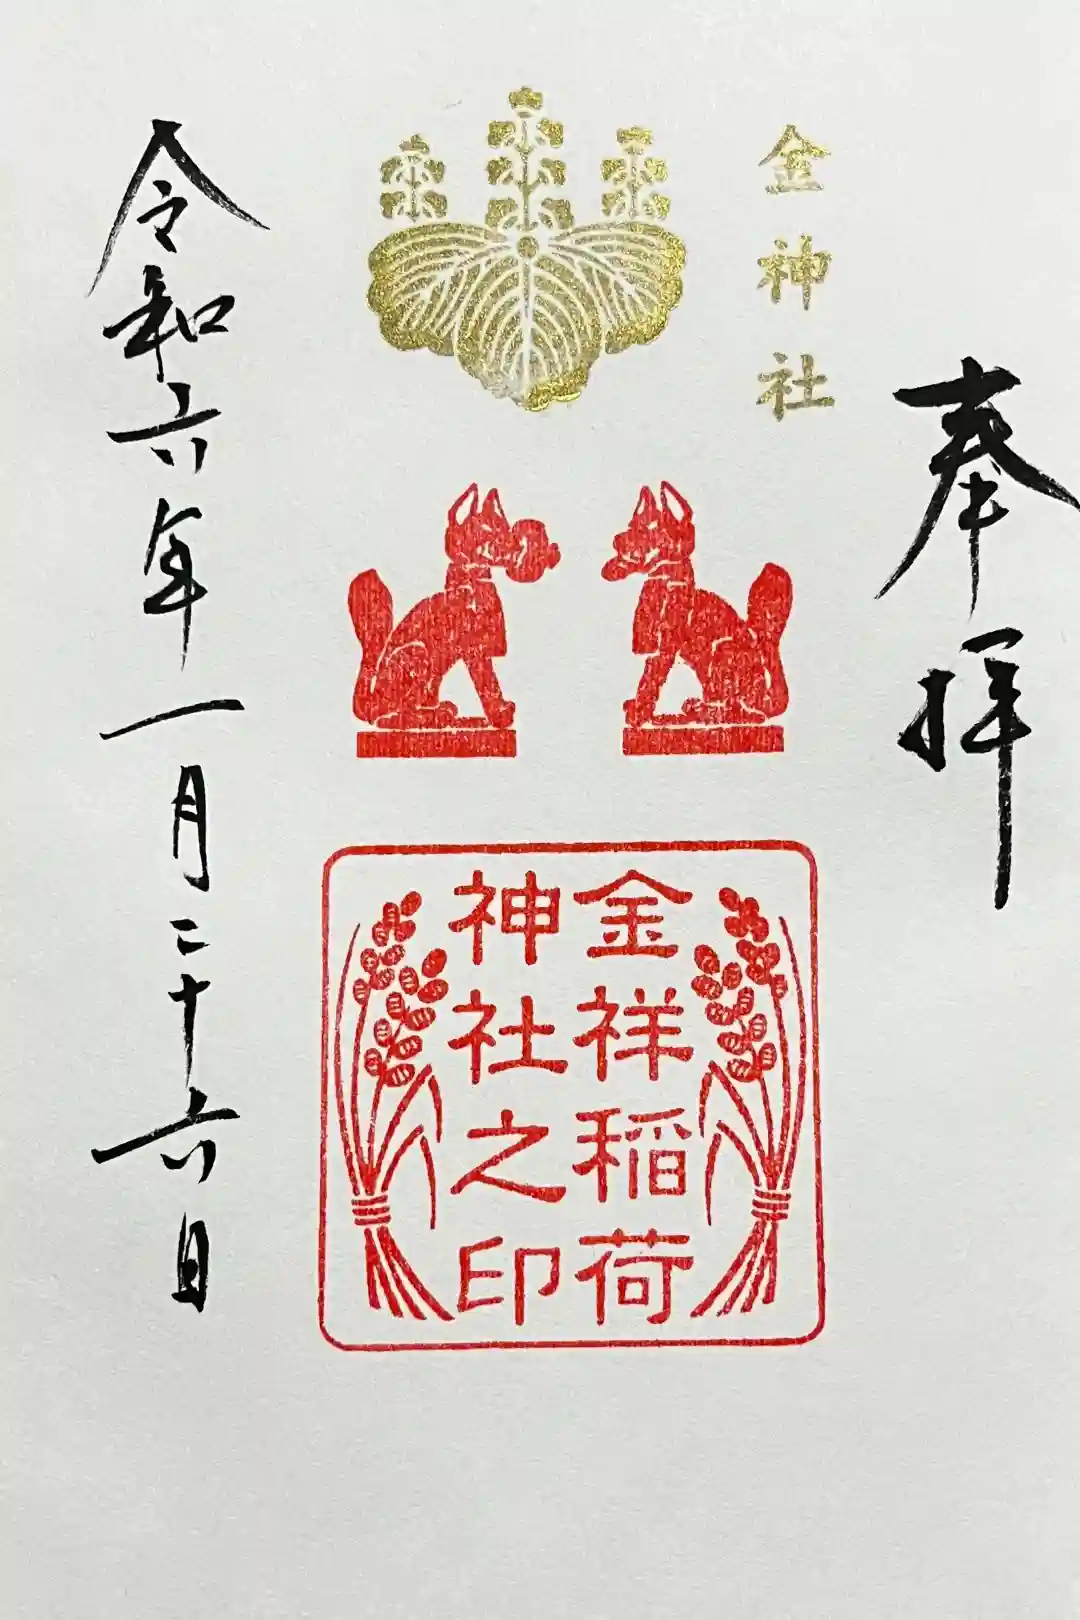 奉拝
金神社
金祥稲荷
神社之印
令和六年一月二十六日